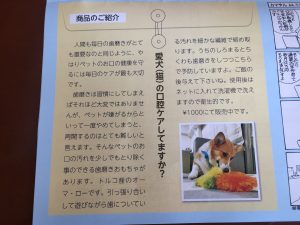 商品のご紹介
愛犬(猫)の口腔ケアしてますか?
人間も毎日の歯磨きがとて
も重要なのと同じように、や
はりペットのお口の健康を守
るには毎日のケアが最も大切
です。
歯磨きは習慣にしてしまえ
ばそれほど大変ではありませ
んが、ペットが嫌がるからと
いって一度やめてしまうと、
再開するのはとても難しいと
思います。そんなペットのお
口の汚れを少しでもとり除く
事のできる歯磨きおもちゃが
あります。トルコ産のオー
マ・ローです。引っ張り合い
して遊びながら歯についてい
る汚れを細かな繊維で絡め取
ります。うちのしろまるとち
くわも歯磨きをしつつこちら
で予防していますよ。ご飯の
後与えて下さいね。使用後は
ネットに入れて洗濯機で洗え
ますので衛生的です。
¥1000にて販売中です。